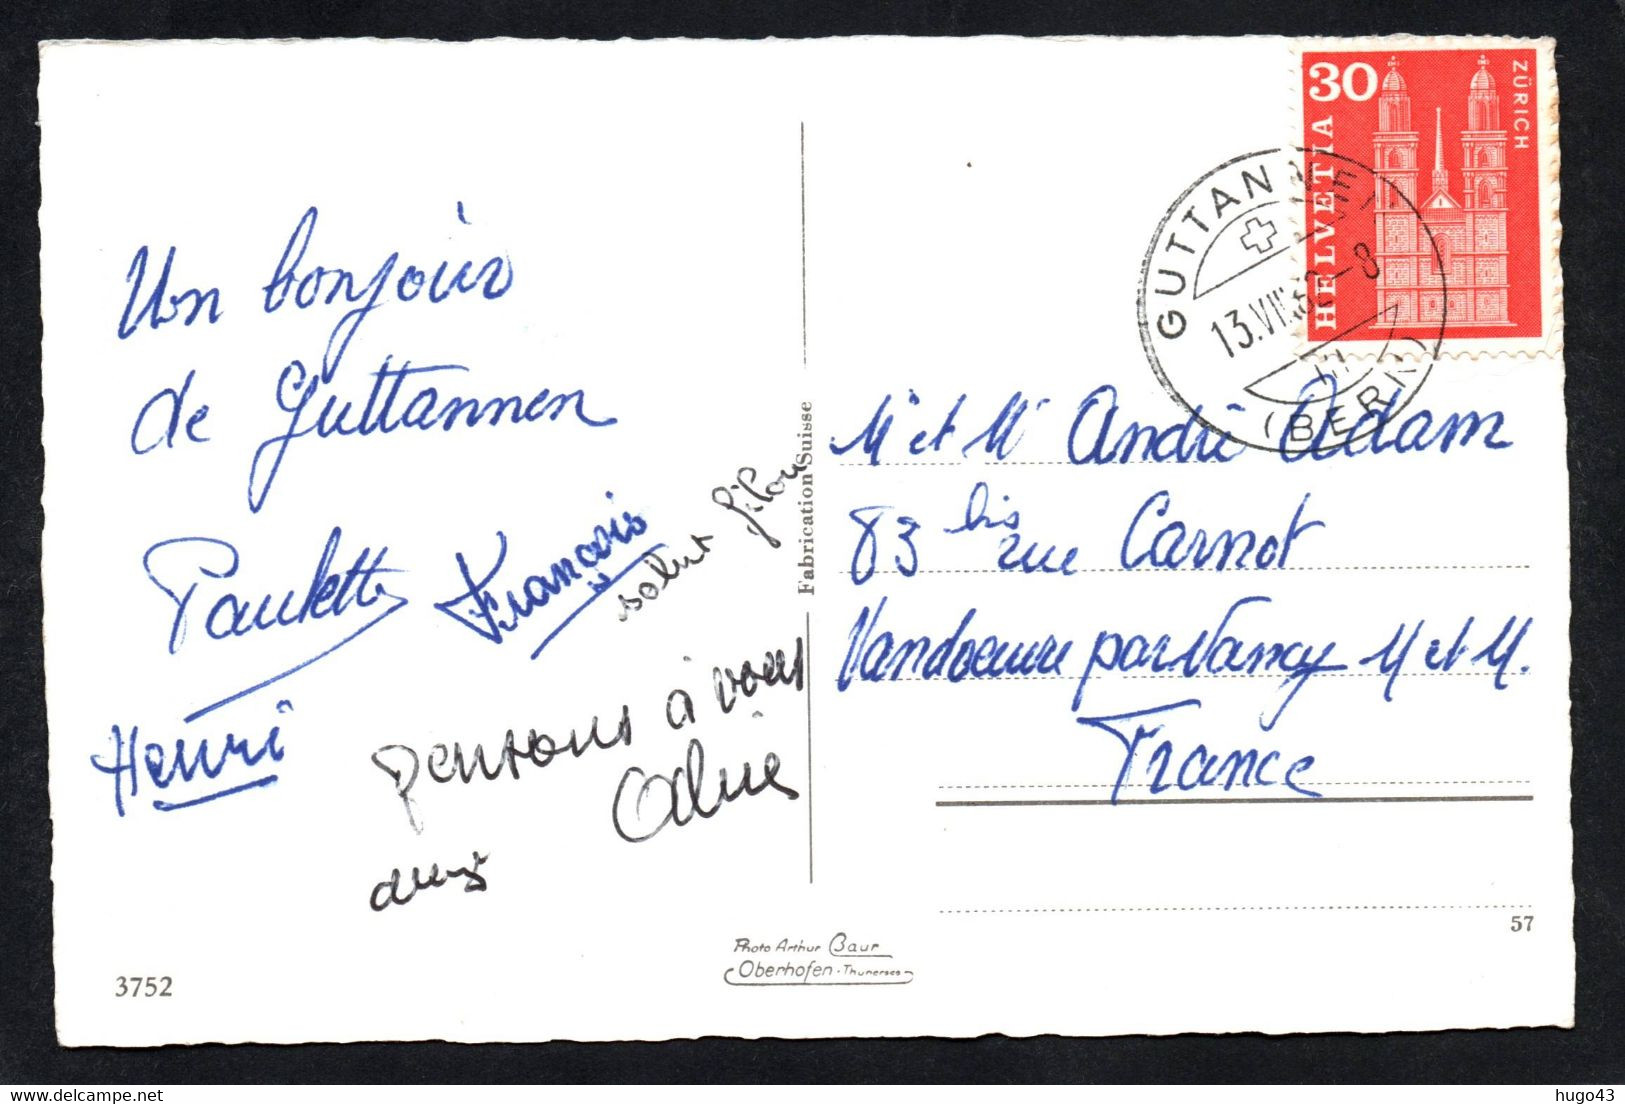 Un bonjour
de Guttannen
Paulette
François
salut
Henri
pensons à vous
3752
Fabrication Suisse
Photo Arthur Baur
Oberhofen-Thunersee
30
HELVETIA
ZÜRICH
GUTTANNEN
13.VIII.62-8
(BERN)
M et M André Adam
83 bis rue Carnot
Vandoeuvre par Nancy M et M.
France
57
hugo43